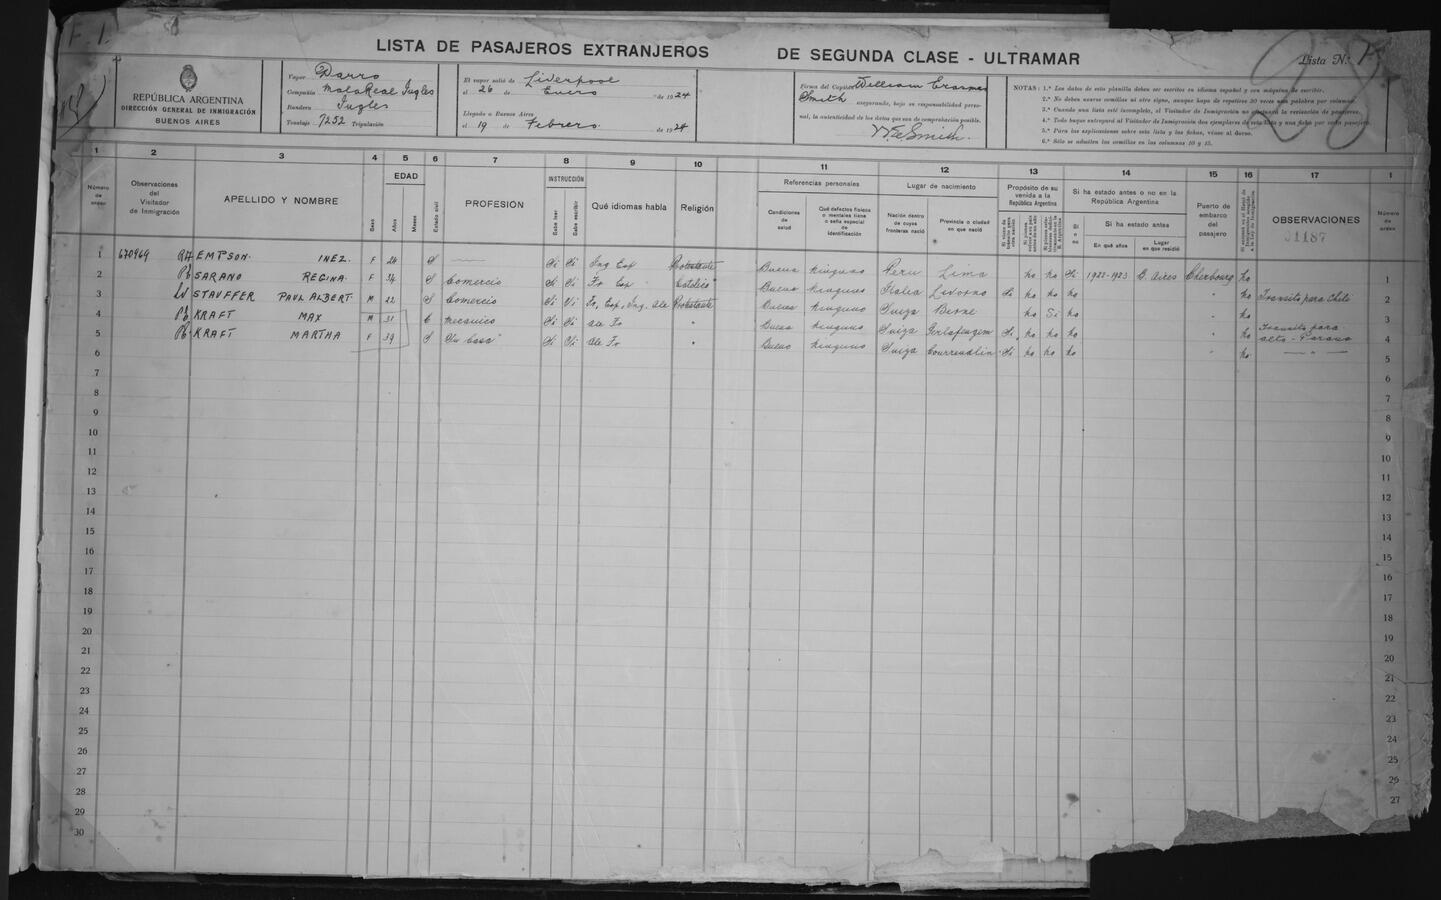 LISTA DE PASAJEROS EXTRANJEROS DE SEGUNDA CLASE - ULTRAMAR
Lista N.º
REPÚBLICA ARGENTINA
DIRECCIÓN GENERAL DE INMIGRACIÓN
BUENOS AIRES
Vapor Darro
Compañía Mala Real Ingles
Bandera Ingles
Tonelaje 7252 Tripulación
El vapor salió de Liverpool
el 26 de Enero de 1924
Llegado a Buenos Aires
el 19 de Febrero de 1924
Firma del Capitán William Erasmus
Smith asegurando, bajo su responsabilidad perso-
nal, la autenticidad de los datos que son de comprobación posible.
W E Smith.
NOTAS: 1.ª Los datos de esta planilla deben ser escritos en idioma español y con máquina de escribir.
2.ª No deben usarse comillas ni otro signo, aunque haya de repetirse 30 veces una palabra por columna.
3.ª Cuando una lista esté incompleta, el Visitador de Inmigración no efectuará la revisación de pasajeros.
4.ª Todo buque entregará al Visitador de Inmigración dos ejemplares de esta lista y una ficha por cada pasajero.
5.ª Para las explicaciones sobre esta lista y las fichas, véase al dorso.
6.ª Sólo se admiten las comillas en las columnas 10 y 15.
1 2 3 4 5 6 7 8 9 10 11 12 13 14 15 16 17 1
Número de orden
Observaciones del Visitador de Inmigración
APELLIDO Y NOMBRE
Sexo
EDAD
Años
Meses
Estado civil
PROFESIÓN
INSTRUCCIÓN
Sabe leer
Sabe escribir
Qué idiomas habla
Religión
Referencias personales
Condiciones de salud
Qué defectos físicos o mentales tiene o seña especial de identificación
Lugar de nacimiento
Nación dentro de cuyas fronteras nació
Provincia o ciudad en que nació
Propósito de su venida a la República Argentina
Si ha estado antes o no en la República Argentina
Si o no
Si ha estado antes
En qué años
Lugar en que residió
Puerto de embarco del pasajero
OBSERVACIONES
Número de orden
01187
1 670969 EMPSON. INEZ. F 24 S — Si Si Ing Esp Protestante Buena Ninguno Peru Lima ho ho Si 1922-1923 B. Aires Cherbourg ho 1
2 SARANO REGINA. F 34 S Comercio Si Si Fr Esp Catolica Buena Ninguno Italia Livorno Si ho ho ho " ho Transito para Chile 2
3 STAUFFER PAUL ALBERT. M 22 S Comercio Si Si Fr, Esp, Ing, Ale Protestante Buena Ninguno Suiza Berne ho Si ho ho 3
4 KRAFT MAX M 31 C Mecanico Si Si Ale Fr " Buena Ninguno Suiza Gerlafingen Si ho ho ho " ho Transito para alto-Parana 4
5 KRAFT MARTHA F 39 S Su Casa Si Si Ale Fr " Buena Ninguno Suiza Courrendlin Si ho ho ho " ho — " — 5
6 6
7 7
8 8
9 9
10 10
11 11
12 12
13 13
14 14
15 15
16 16
17 17
18 18
19 19
20 20
21 21
22 22
23 23
24 24
25 25
26 26
27 27
28
29
30